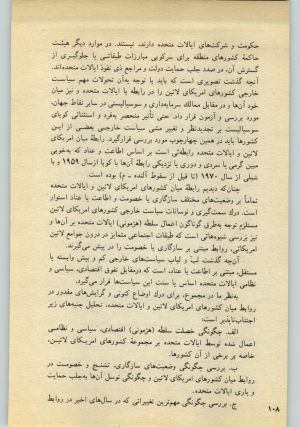 حکومت و شرکت‌های ایالات متحده دارند، نیستند. در موارد دیگر هیئت
حاکمهٔ کشورهای منطقه برای سرکوبی مبارزات طبقاتی یا جلوگیری از
گسترش آن، در صدد جلب حمایت دولت و مراجع ذی نفوذ ایالات متحده‌اند.
آنچه گذشت تصویری است که باید با توجه به‌آن تحولات مهم سیاست
خارجی کشورهای امریکای لاتین را در رابطه با ایالات متحده و نیز میان
خود آن‌ها و در مقابل ممالک سرمایه‌داری و سوسیالیستی در سایر نقاط جهان،
مورد بررسی و آزمون قرار داد. حتی تأثیر منحصر بفرد و استثنائی کوبای
سوسیالیست بر تجدیدنظر و تغییر مشی سیاست خارجی بعضی از این
کشورها باید در همین چهارچوب مورد بررسی قرارگیرد. رابطهٔ میان امریکای
لاتین و ایالات متحده رابطه‌ئی است بر اساس اطاعت و عناد که به‌خوبی
مبین گرمی یا سردی و دوری یا نزدیکی رابطهٔ آن‌ها با کوبا ازسال ۱۹۵۹ و با
شیلی از سال ۱۹۷۰ (تا قبل از سقوط آلنده ـ م) بوده است.
چنان‌که دیدیم رابطهٔ میان کشورهای امریکای لاتین و ایالات متحده
تماماً بر وضعیت‌های مختلف سازگاری یا خصومت و اطاعت یا عناد استوار
است. درك سمت‌گیری و نوسانات سیاست خارجی کشورهای امریکای لاتین
مستلزم توجه به‌طرق گوناگون اعمال سلطه (هژمونی) ایالات متحده بر آن‌ها و
نیز بررسی شیوه‌هائی است که طبقات اجتماعی متمایز در درون جوامع لاتین
امریکائی، روابط مبتنی بر سازگاری یا خصومت را در پیش می‌گیرند.
آن‌چه گذشت لبّ و لباب سیاست‌های خارجی کم و بیش وابسته یا
مستقل، مبتنی بر اطاعت یا عناد، است که‌درمقابل تفوق اقتصادی، سیاسی و
نظامی ایالات متحده اساس یا سنت این سیاست‌ها قرار می‌گیرد.
به‌نظر ما در مجموع، برای درك اوضاع کنونی و گرایش‌های مقدور در
روابط میان کشورهای امریکای لاتین و ایالات متحده، تحلیل جنبه‌های زیر
اجتناب‌ناپذیر است:
الف. چگونگی خصلت سلطه (هژمونی) اقتصادی، سیاسی و نظامی
اعمال شده توسط ایالات متحده بر مجموعهٔ کشورهای امریکای لاتین،
خاصه بر برخی از آن کشورها.
ب. بررسی چگونگی وضعیت‌های سازگاری، تشنج و خصومت در
روابط میان کشورهای امریکای لاتین و چگونگی توسل آن‌ها به‌جلب حمایت
و یاری ایالات متحده.
ج. بررسی چگونگی مهم‌ترین تغییراتی که در سال‌های اخیر در روابط
۱۰۸